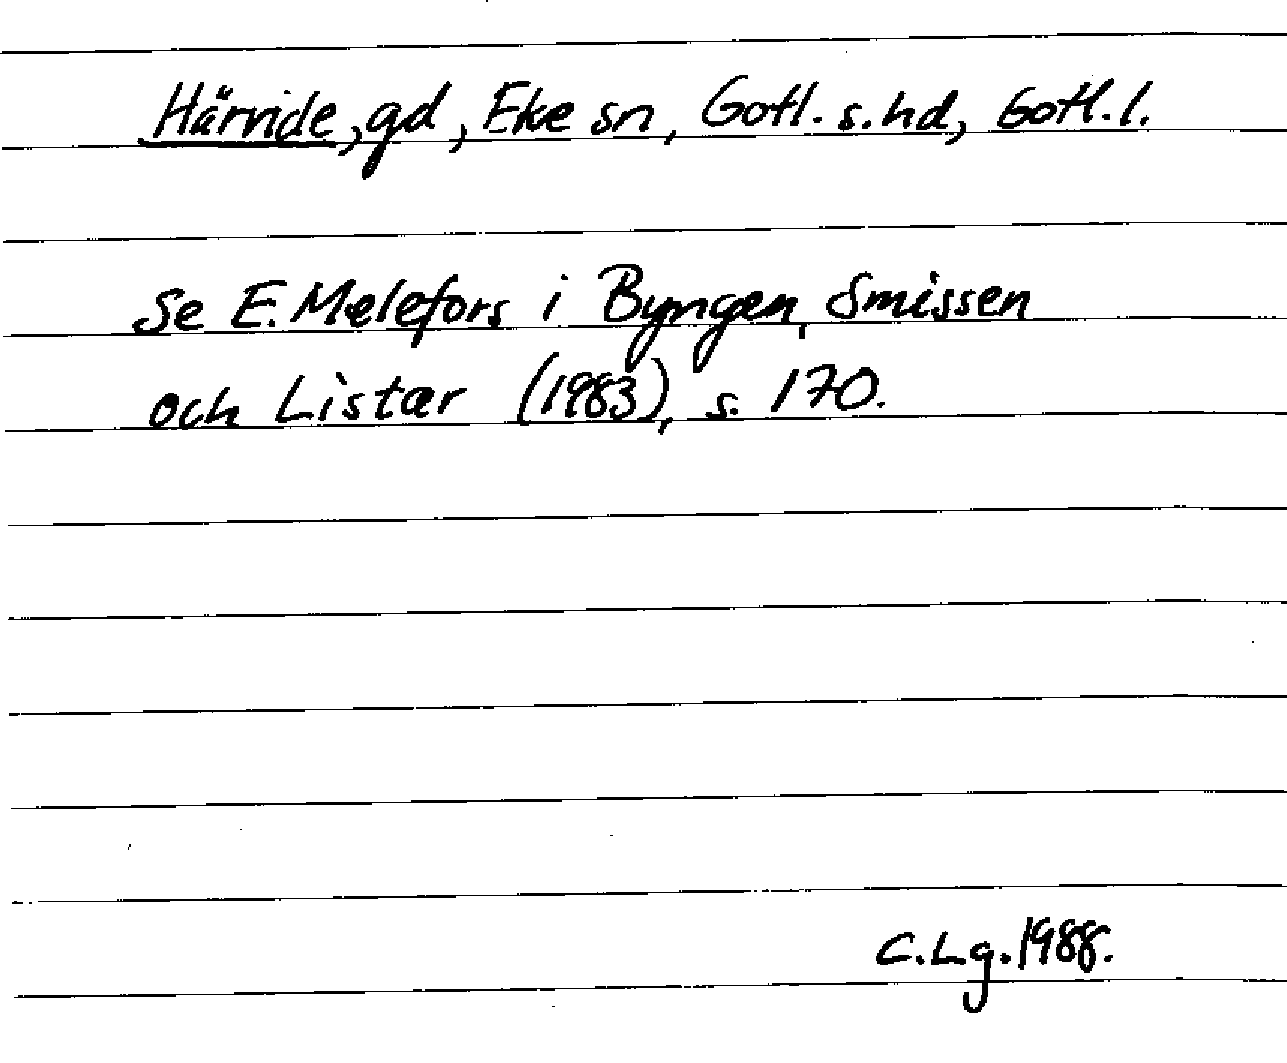 Härvide, gd, Eke sn, Gotl. s. hd, Gotl. l.
Se E. Melefors i Byngen, Smissen
och Listar (1983), s. 170.
C. Lg. 1988.